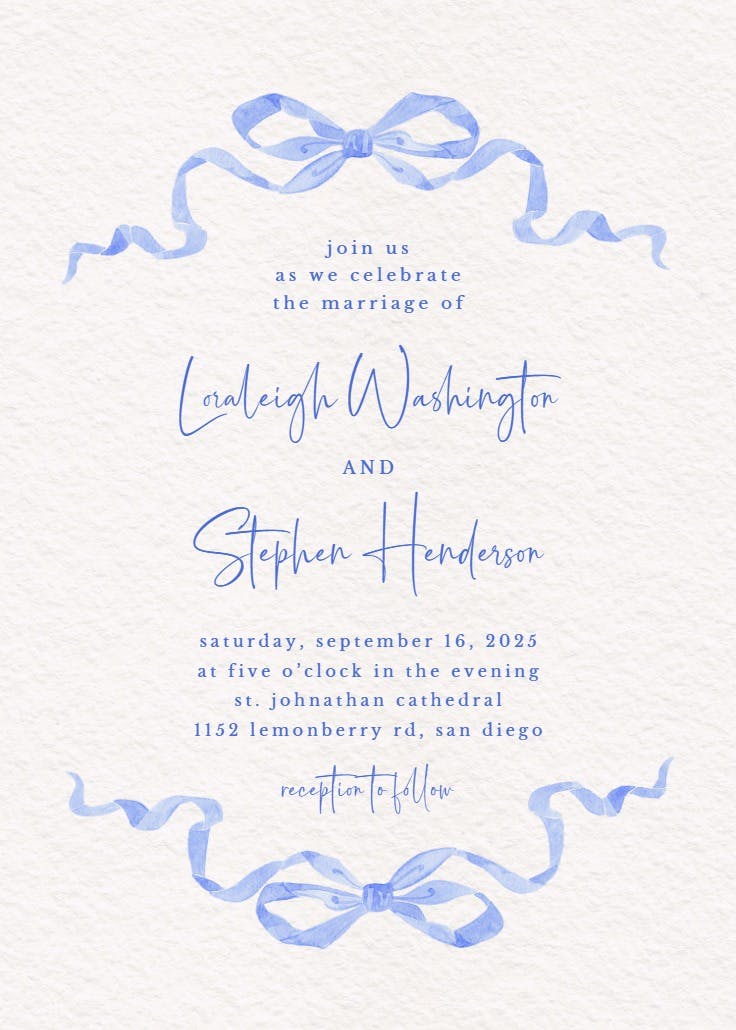 join us
as we celebrate
the marriage of
Loraleigh Washington
AND
Stephen Henderson
saturday, september 16, 2025
at five o’clock in the evening
st. johnathan cathedral
1152 lemonberry rd, san diego
reception to follow